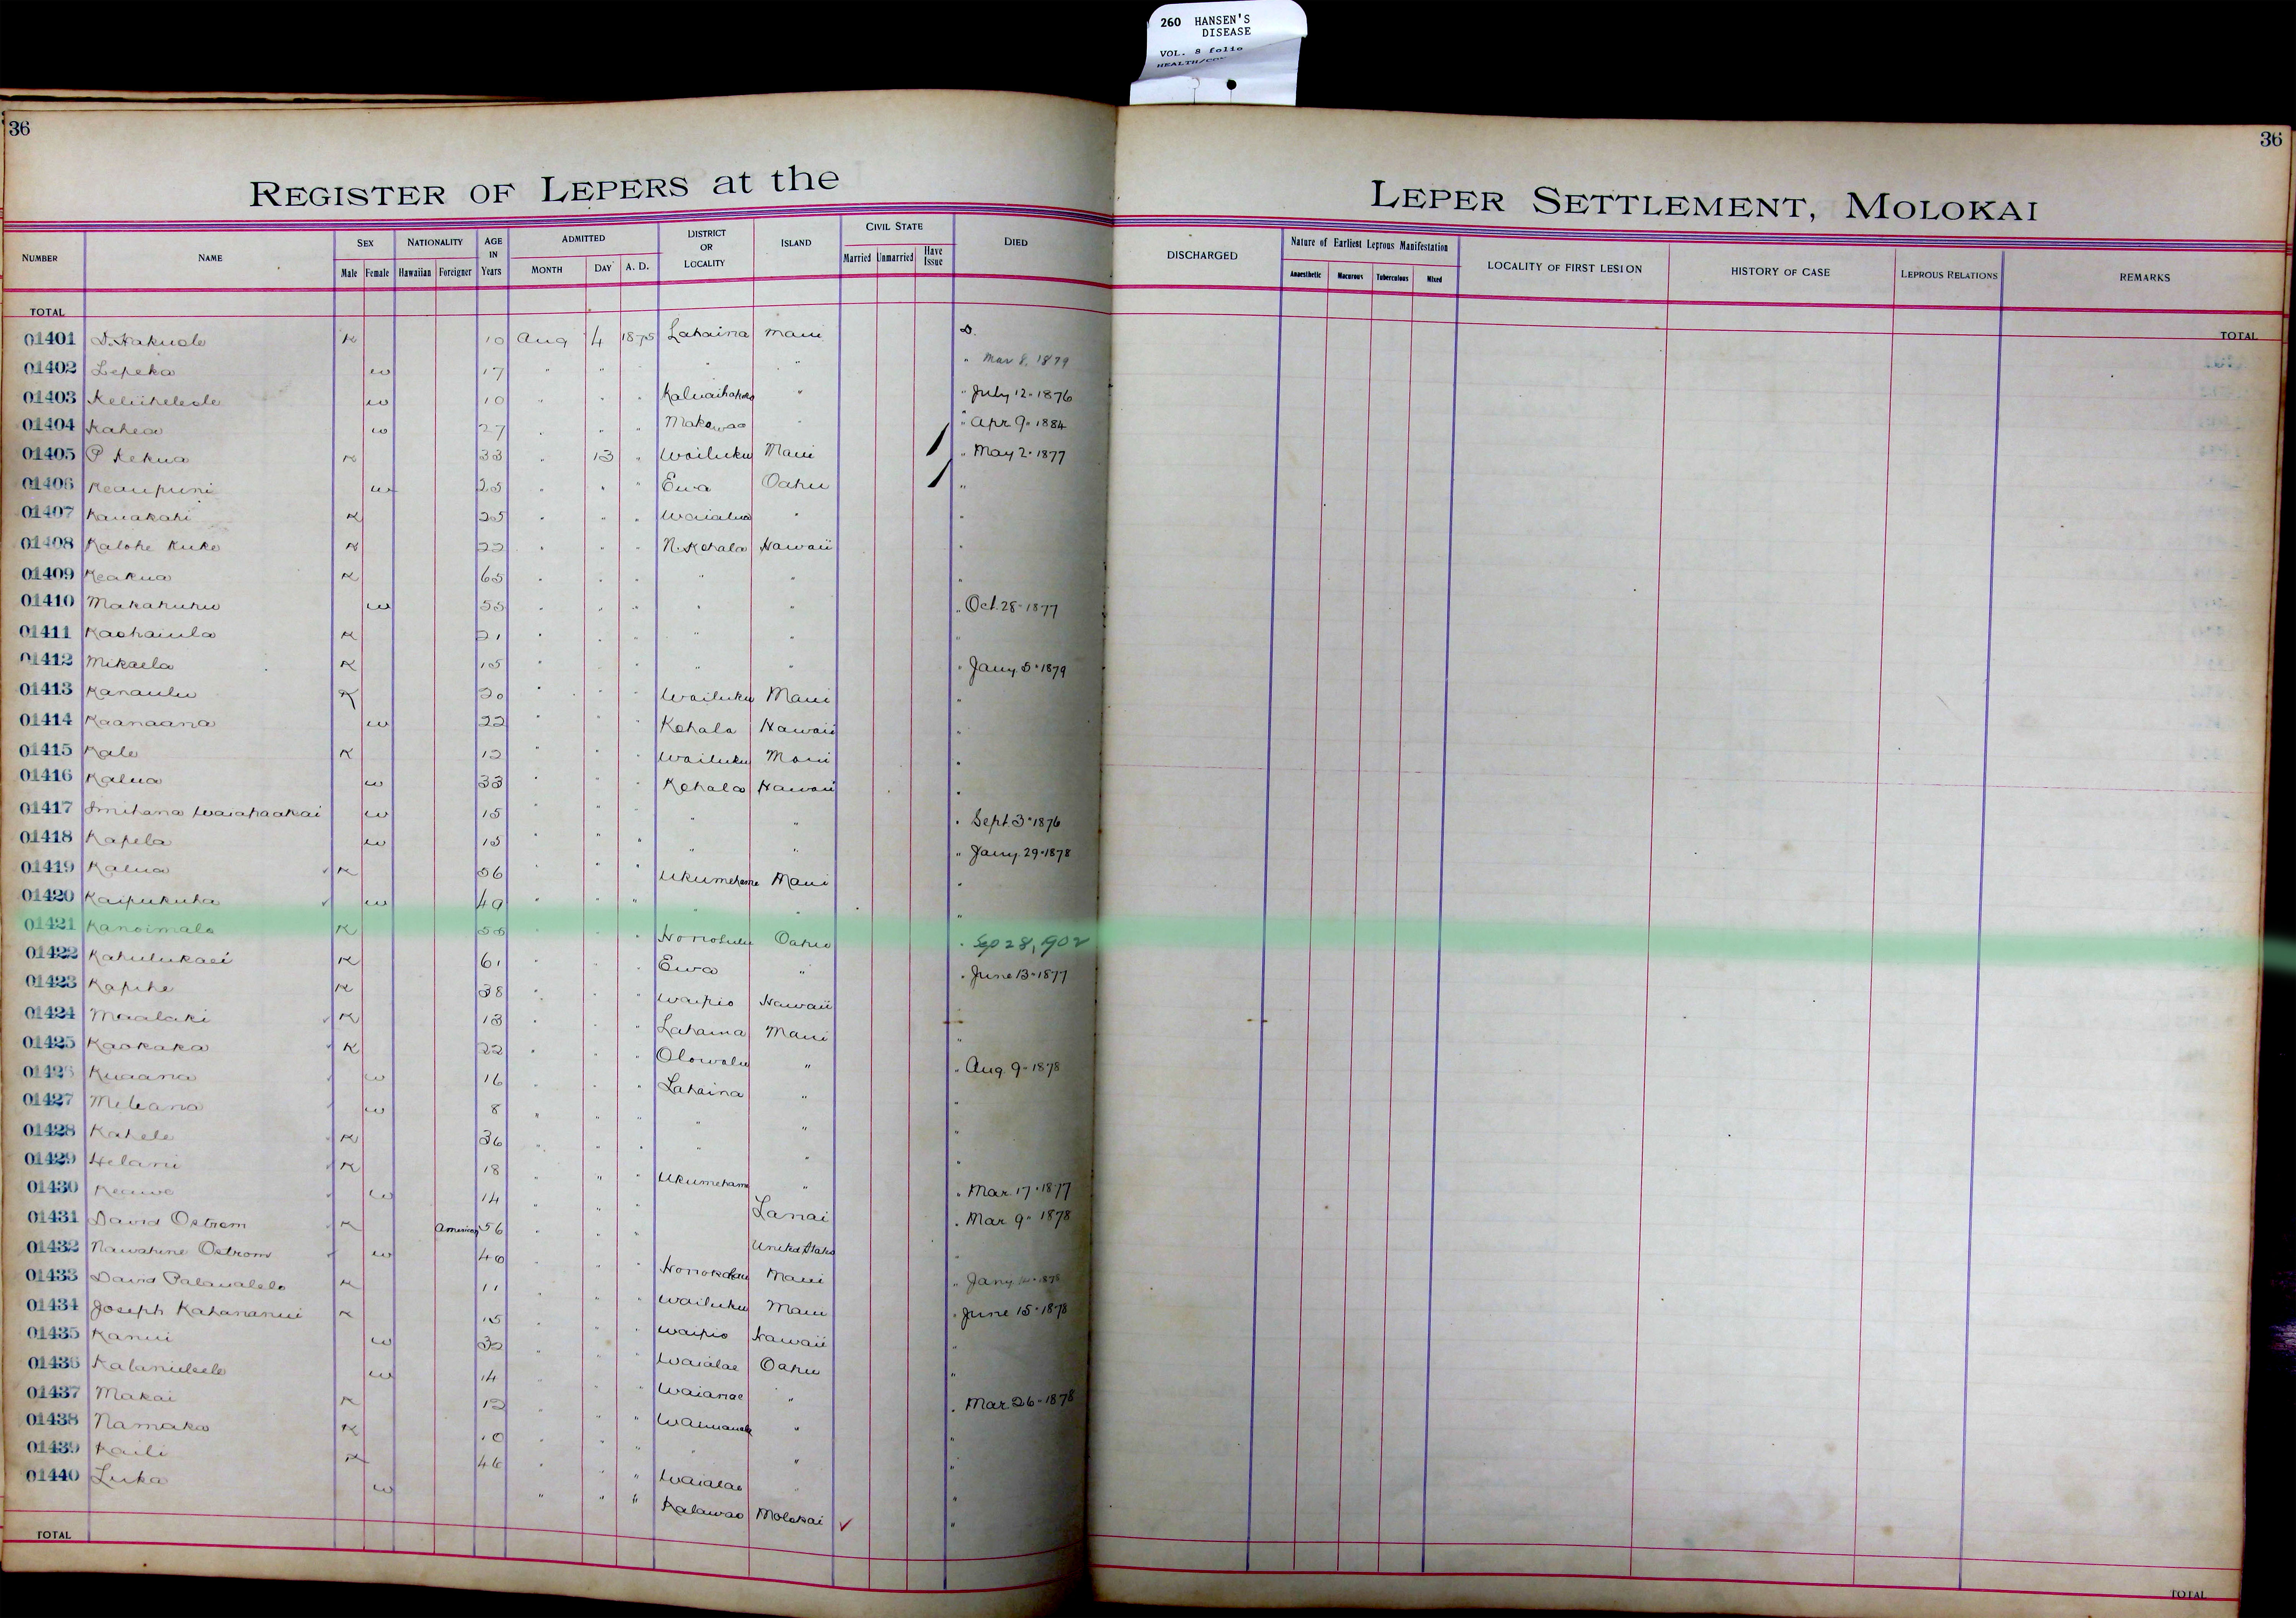 260 HANSEN'S
DISEASE
VOL. 8 folio
36
36
REGISTER OF LEPERS at the LEPER SETTLEMENT, MOLOKAI
NUMBER NAME SEX Male Female NATIONALITY Hawaiian Foreigner AGE IN Years ADMITTED MONTH DAY A. D. DISTRICT OR LOCALITY ISLAND CIVIL STATE Married Unmarried Have Issue DIED DISCHARGED Nature of Earliest Leprous Manifestation Anaesthetic Macurous Tuberculous Mixed LOCALITY OF FIRST LESION HISTORY OF CASE LEPROUS RELATIONS REMARKS
TOTAL TOTAL
01401 D. Hakuole K 10 Aug 4 1875 Lahaina Maui D.
01402 Lepeka w 17 " " " " " " Mar 8, 1879
01403 w 10 " " " " " July 12-1876
01404 Kahea w 27 " " " Makawao " " Apr 9-1884
01405 P Kekua K 33 " 13 " Wailuku Maui / " May 2-1877
01406 Keaupuni w 25 " " " Ewa Oahu / "
01407 Kauakahi K 25 " " " Waialua " "
01408 Kalohe Kuke K 22 " " " N. Kohala Hawaii "
01409 Keakua K 65 " " " " " "
01410 Makahuhu w 55 " " " " " " Oct. 28-1877
01411 Kaohaiula K 21 " " " " " "
01412 Mikaela K 15 " " " " " " Jany. 5-1879
01413 Kanaulu K 20 " " " Wailuku Maui "
01414 Kaanaana w 22 " " " Kohala Hawaii "
01415 Kale K 12 " " " Wailuku Maui "
01416 Kalua w 33 " " " Kohala Hawaii "
01417 w 15 " " " " " " Sept. 3-1876
01418 Kapela w 15 " " " " " " Jany. 29-1878
01419 Kalua K 56 " " " Ukumehame Maui "
01420 Kaipukuha w 49 " " " " " "
01421 Kanoimalo K 55 " " " Honolulu Oahu " Sep 28, 1902
01422 Kahulukaei K 61 " " " Ewa " " June 13-1877
01423 Kapihe K 38 " " " Waipio Hawaii
01424 Maalaki K 13 " " " Lahaina Maui "
01425 Kaokaka K 22 " " " Olowalu " " Aug. 9-1878
01426 Kuaana w 16 " " " Lahaina " "
01427 Meleana w 8 " " " " " "
01428 Kahele K 36 " " " " " "
01429 Helani K 18 " " " Ukumehame " " Mar. 17-1877
01430 Keawe w 14 " " " Lanai " Mar. 9-1878
01431 David Ostrom K American 56 " " " United States "
01432 Nawahine Ostrom w 40 " " " Honokohau Maui " Jany. 1878
01433 David Palaualelo K 11 " " " Wailuku Maui " June 15-1878
01434 Joseph Kahananui K 15 " " " Waipio Hawaii "
01435 Kanui w 32 " " " Waialae Oahu "
01436 w 14 " " " Waianae " " Mar. 26-1878
01437 Makai K 12 " " " " "
01438 Namaka K 10 " " " " " "
01439 Kaili K 46 " " " Waialae " "
01440 Luka w " " " Kalawao Molokai ✓ "
TOTAL TOTAL